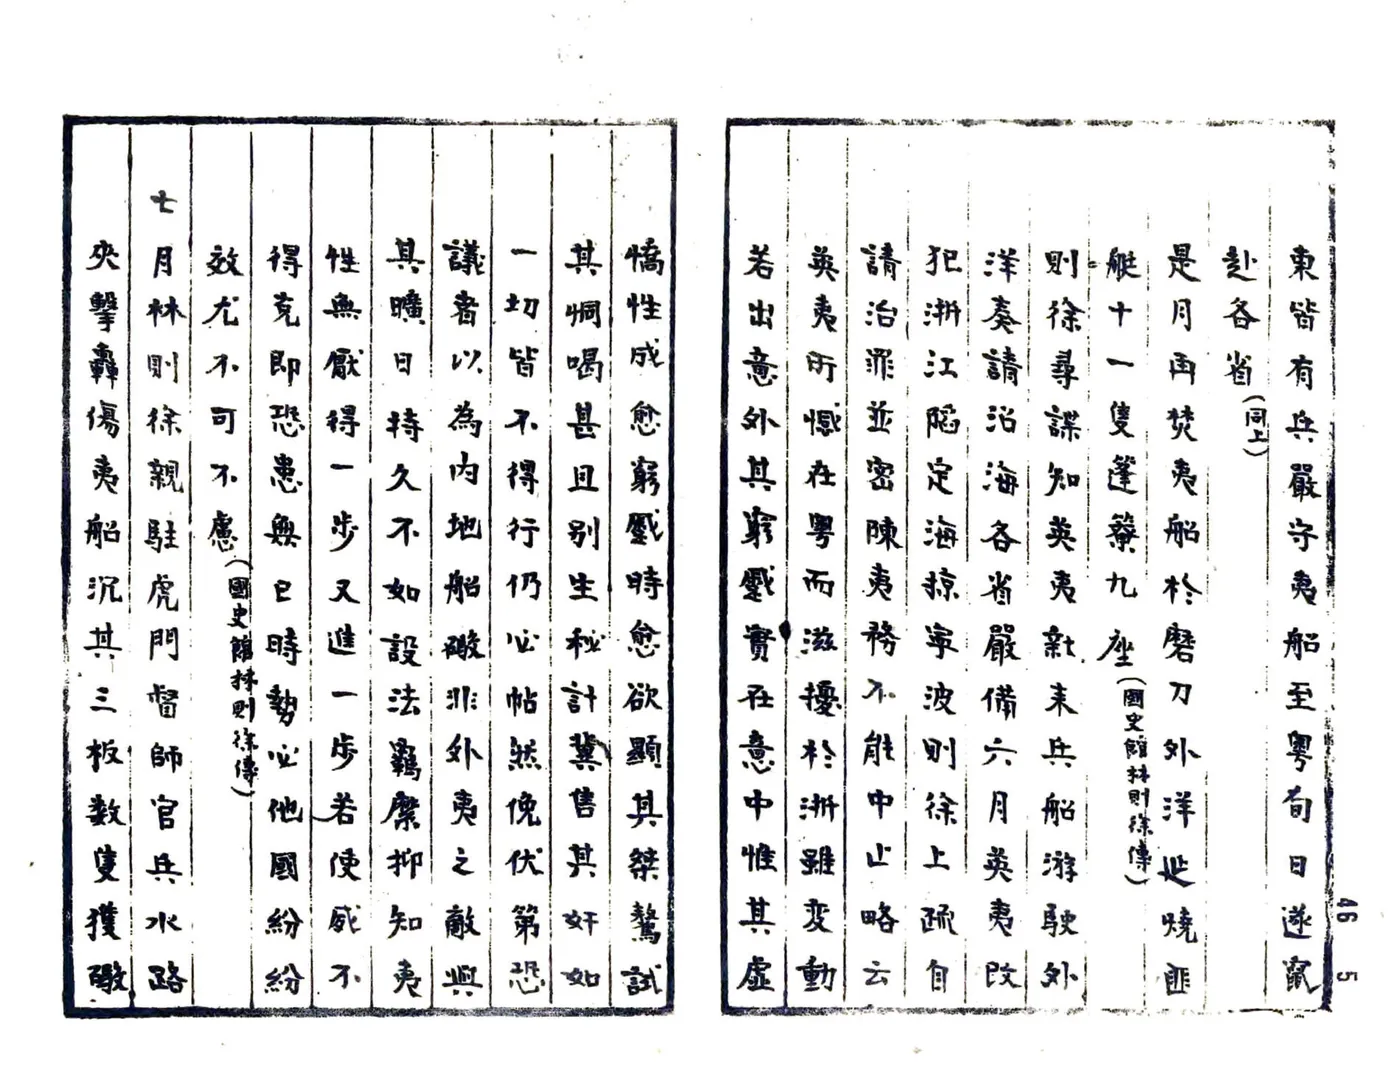 東皆有兵嚴守夷船至粵旬日遂竄
赴各省(同上)
是月再焚夷船於磨刀外洋延燒匪
艇十一隻篷簝九座(國史館林則徐傳)
則徐尋諜知英夷新来兵船游駛外
洋奏請沿海各省嚴備六月英夷改
犯浙江陷定海掠寧波則徐上疏自
請治罪並密陳夷務不能中止略云
英夷所憾在粵而滋擾於浙雖变動
若出意外其窮蹙實在意中惟其虛
憍性成愈窮蹙時愈欲顯其桀驁試
其恫喝甚且别生秘計冀售其奸如
一切皆不得行仍必帖然俛伏第恐
議者以為内地船礮非外夷之敵與
其曠日持久不如設法羈縻抑知夷
性無厭得一步又進一步若使威不
得克即恐患無已時勢必他國紛紛
效尤不可不慮(國史館林則徐傳)
七月林則徐親駐虎門督師官兵水路
夾擊轟傷夷船沉其三板数隻獲礮
46 5